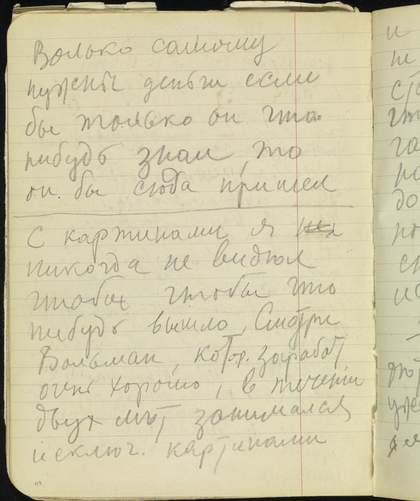 Волько самому
нужны деньги если
бы только он что
нибудь знал, то
он бы сюда пришел
С картинами я
никогда не видел
чтобы чтобы что
нибудь вышло. Смотри
Вольман, кот. зарабат
очень хорошо, в течении
двух лет занимался
исключ. картинами